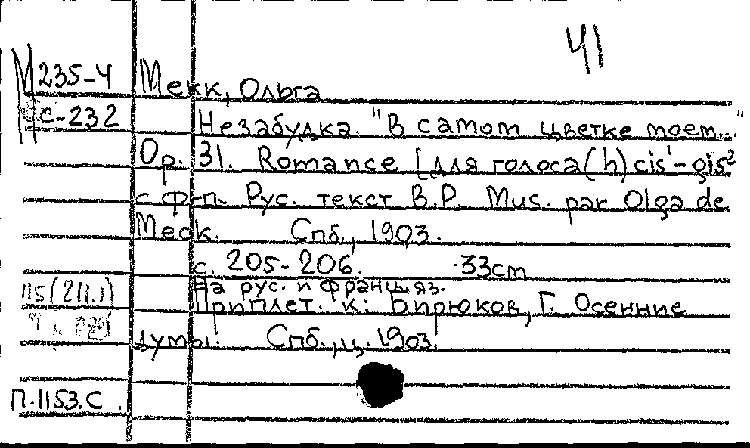 41
М 235-4 Мекк, Ольга
С-232 Незабудка. "В самом цветке моем..."
Op. 31. Romance [для голоса (h) cis¹-gis²
с ф-п. Рус. текст В.Р. Mus. par Olga de
Meck. Спб., 1903.
с. 205-206. 33cm
на рус. и франц. яз.
Приплет. к: Бирюков, Г. Осенние
думы. Спб., ц. 1903.
П.1153.С.